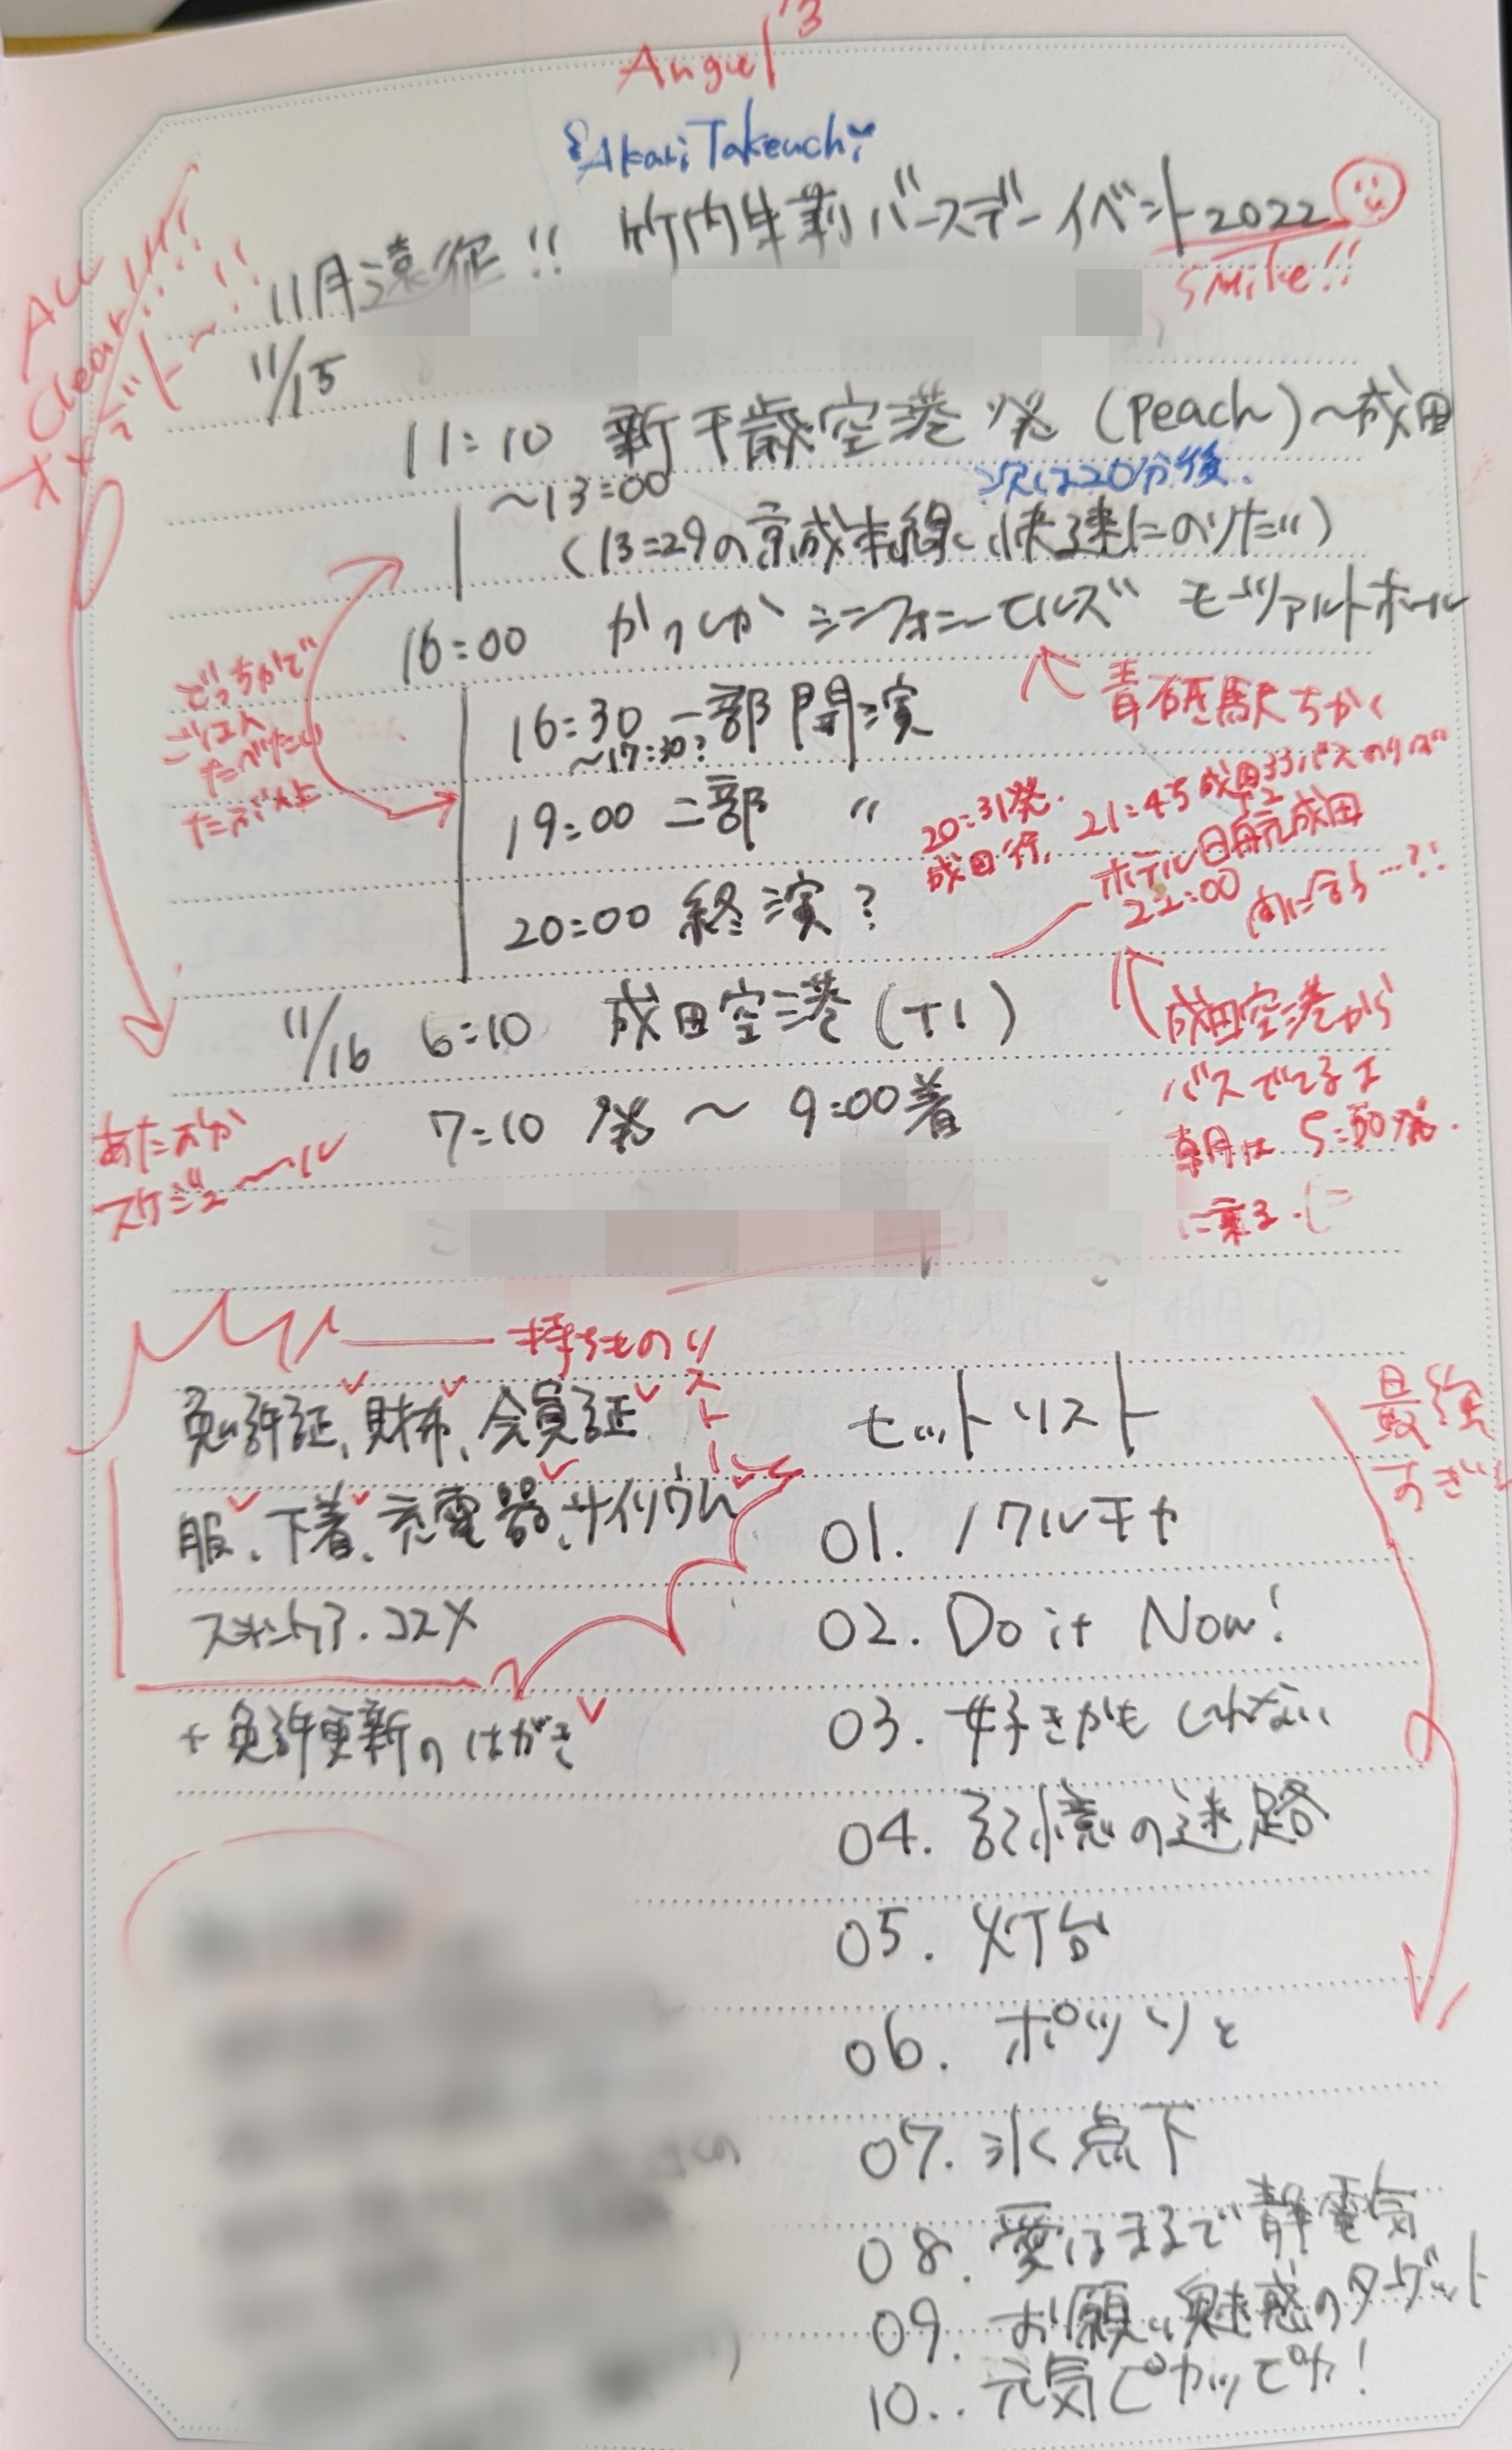 Angel 3
Akari Takeuchi
11月遠征!! 竹内朱莉バースデーイベント2022
smile!!
ALL
Clear!!!!
オメデトー!!
11/15
11:10 新千歳空港発 (peach)〜成田
〜13:00
次は20分後.
(13:29の京成本線、快速にのりたい)
16:00 かつしかシンフォニーヒルズ モーツァルトホール
青砥駅ちかく
どっちかで
ごはん
たべたい
16:30 一部開演
〜17:30?
19:00 二部 〃
20:31発.
成田行,
21:45成田
ホテル日航成田
22:00
20:00 終演?
11/16 6:10 成田空港(T1)
成田空港から
バスででるよ
朝は 5:50発.
に乗る.
7:10 発 〜 9:00着
あたおか
スケジュ〜ル
持ちものリスト
免許証、財布、会員証
服、下着、充電器、サイリウム
スキンケア.コスメ
+ 免許更新のはがき
セットリスト
最強
すぎ
01. ノクルチカ
02. Do it Now!
03. 好きかもしれない
04. 記憶の迷路
05. 灯台
06. ポツリと
07. 氷点下
08. 愛はまるで静電気
09. お願い魅惑のターゲット
10.. 元気ピカッピカ!